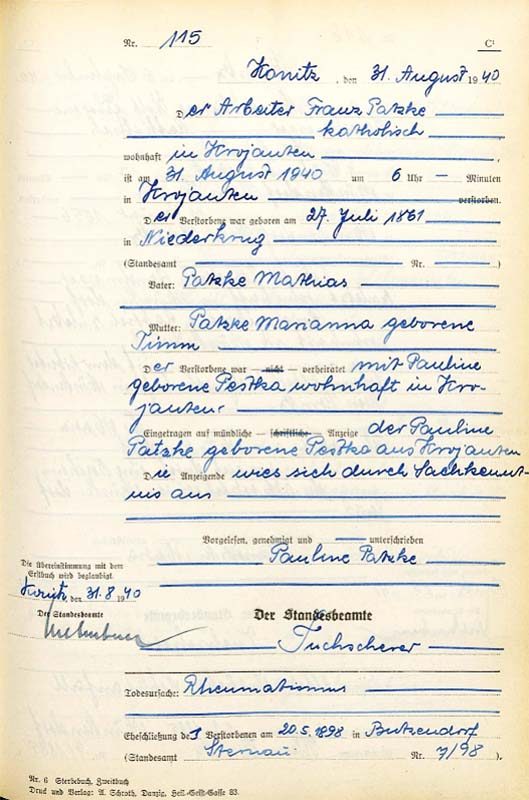 Nr. 115 C¹
Konitz, den 31. August 1940
Der Arbeiter Franz Patzke
katholisch
wohnhaft in Krojanten
ist am 31. August 1940 um 6 Uhr — Minuten
in Krojanten verstorben.
Der Verstorbene war geboren am 27. Juli 1861
in Niederkrug
(Standesamt Nr. )
Vater: Patzke Mathias
Mutter: Patzke Marianna geborene
Timm
Der Verstorbene war — nicht — verheiratet mit Pauline
geborene Pestka wohnhaft in Kro-
janten.
Eingetragen auf mündliche — schriftliche — Anzeige der Pauline
Patzke geborene Pestka aus Krojanten
Die Anzeigende wies sich durch Sachkennt-
nis aus
Vorgelesen, genehmigt und unterschrieben
Pauline Patzke
Die Übereinstimmung mit dem
Erstbuch wird beglaubigt.
Konitz, den 31.8.1940
Der Standesbeamte
Der Standesbeamte
Tuchscherer
Todesursache: Rheumatismus
Eheschließung des Verstorbenen am 20.5.1898 in Butzendorf
(Standesamt Sternau Nr. 7/98)
Nr. 6 Sterbebuch, Zweitbuch
Druck und Verlag: A. Schroth, Danzig, Heil.-Geist-Gasse 83.